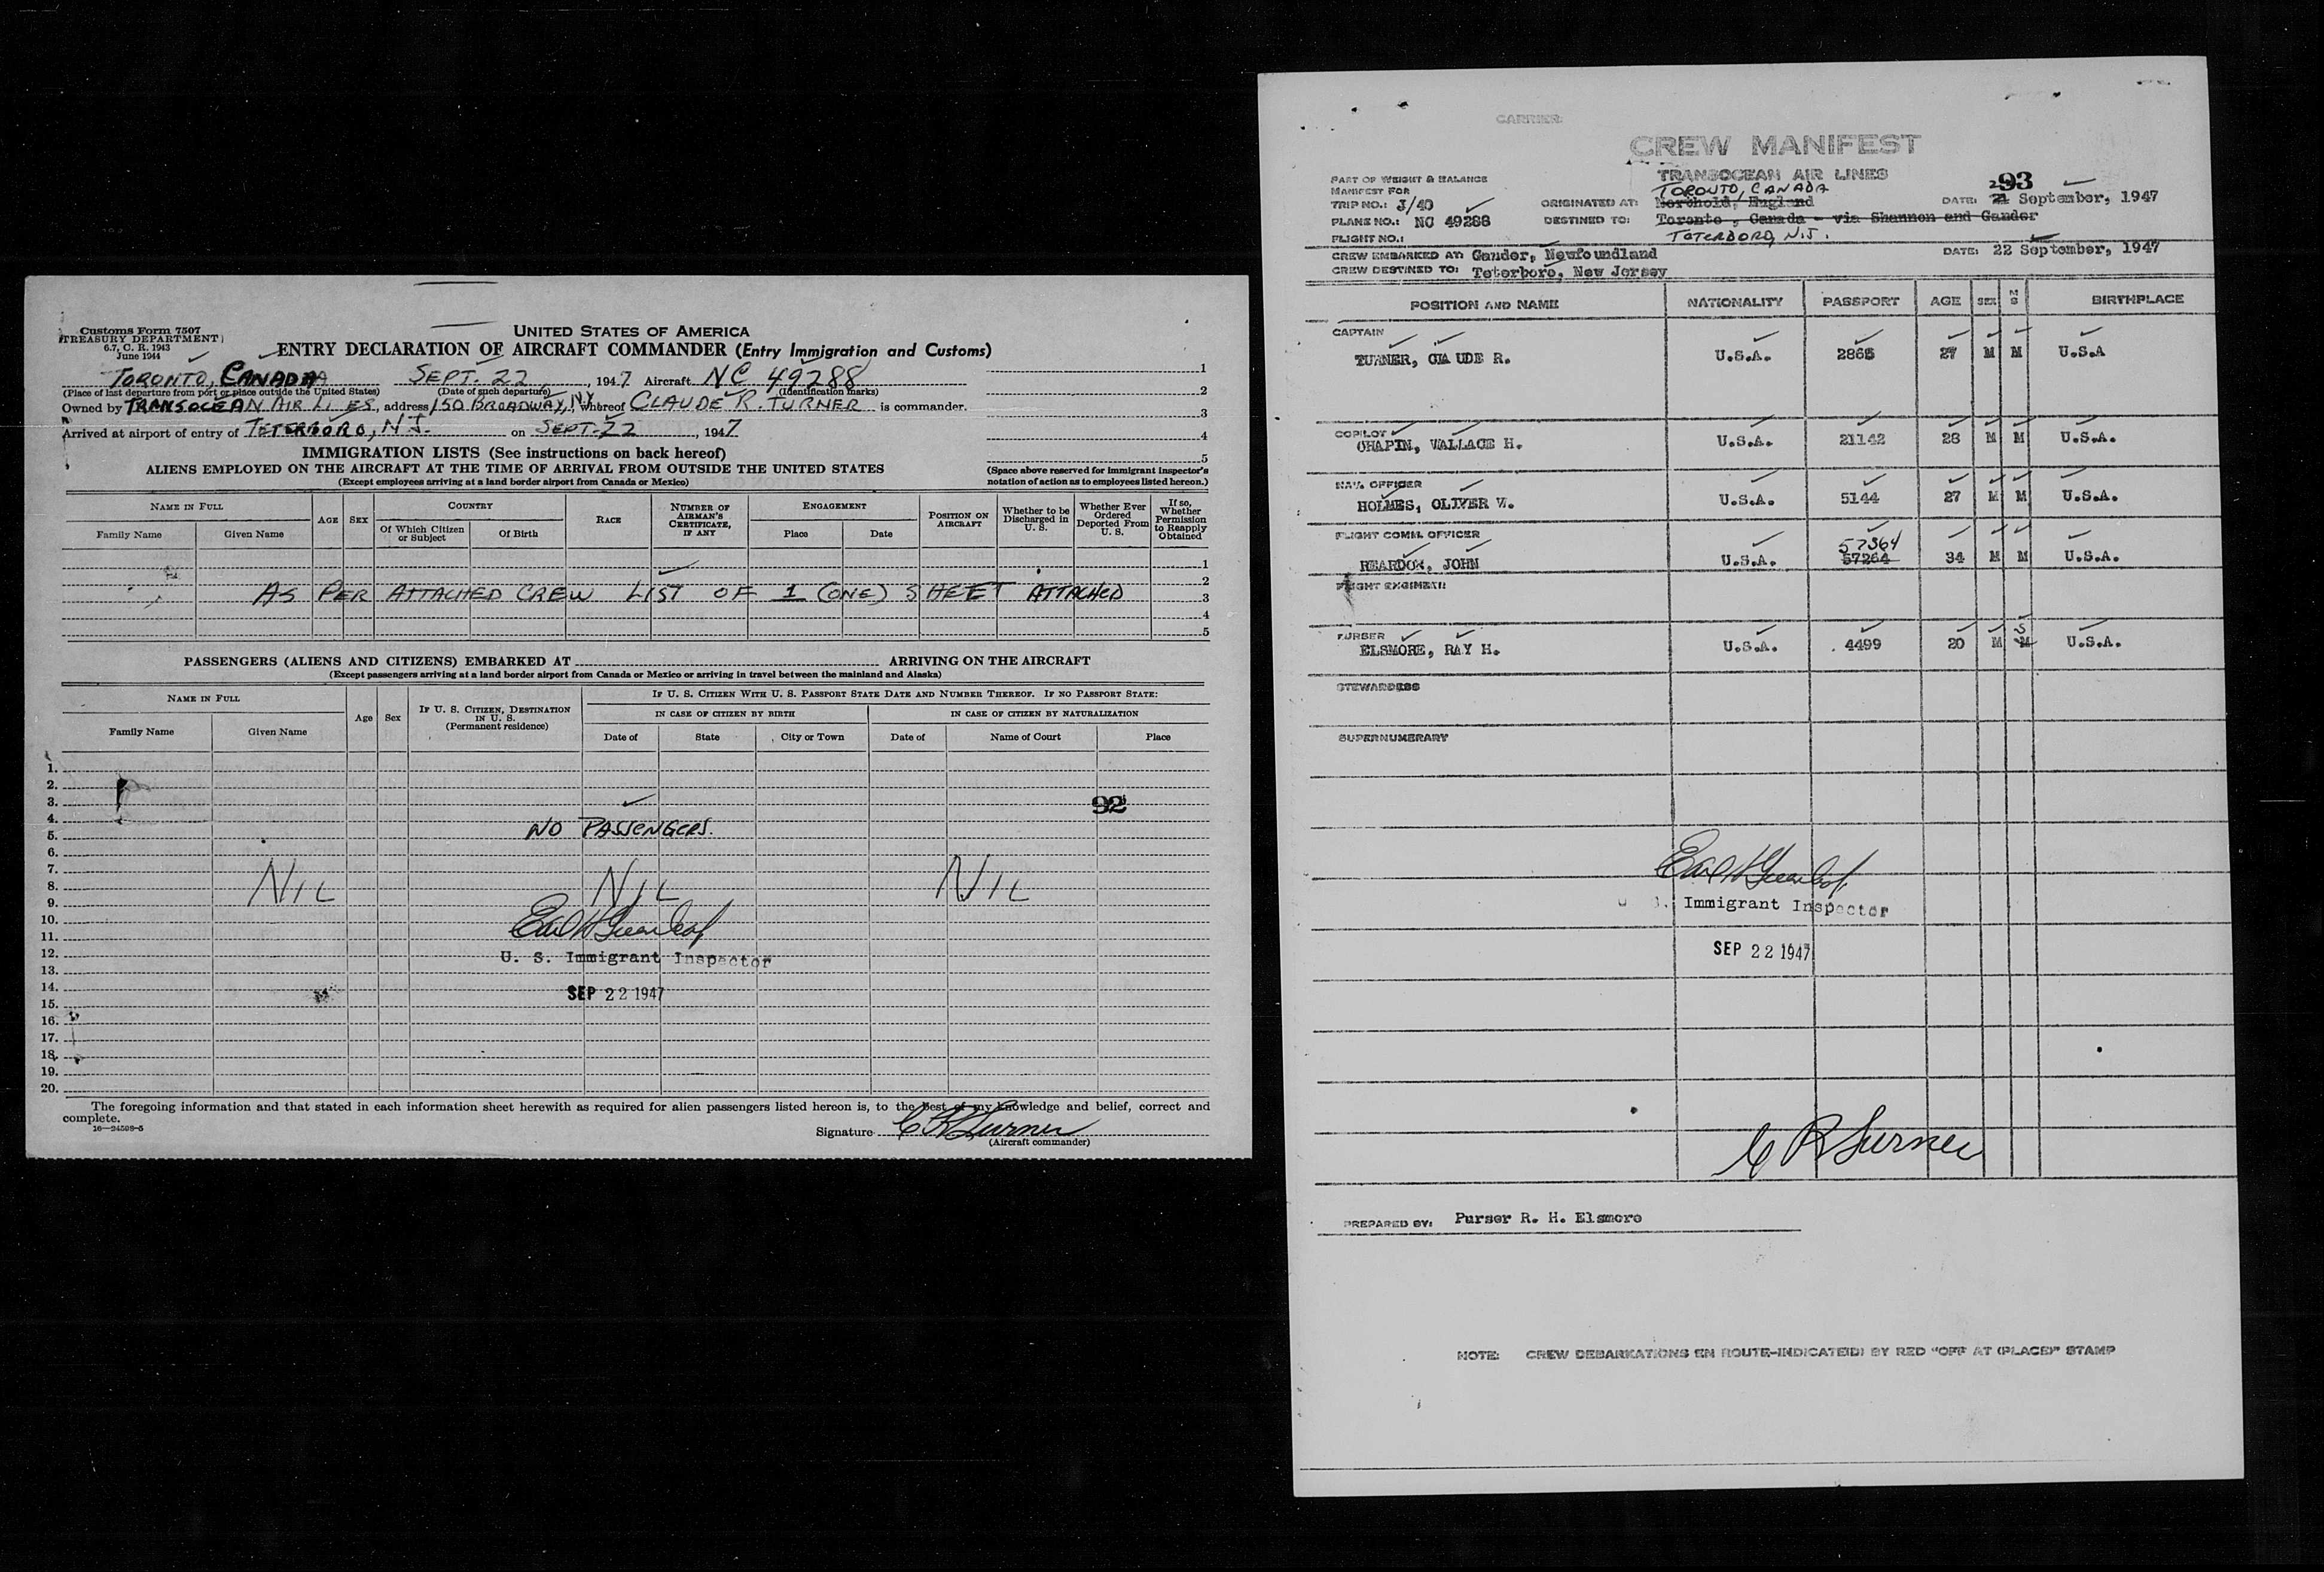 Customs Form 7507
TREASURY DEPARTMENT
6.7, C. R. 1943
June 1944
UNITED STATES OF AMERICA
ENTRY DECLARATION OF AIRCRAFT COMMANDER (Entry Immigration and Customs)
TORONTO, CANADA SEPT. 22, 1947 Aircraft NC 49288
(Place of last departure from port or place outside the United States) (Date of such departure) (Identification marks)
Owned by TRANSOCEAN AIR LINES, address 150 BROADWAY, NY whereof CLAUDE R. TURNER is commander.
Arrived at airport of entry of TETERBORO, N.J. on SEPT. 22, 1947
1
2
3
4
5
(Space above reserved for immigrant inspector's notation of action as to employees listed hereon.)
IMMIGRATION LISTS (See instructions on back hereof)
ALIENS EMPLOYED ON THE AIRCRAFT AT THE TIME OF ARRIVAL FROM OUTSIDE THE UNITED STATES
(Except employees arriving at a land border airport from Canada or Mexico)
NAME IN FULL
Family Name
Given Name
AGE
SEX
COUNTRY
Of Which Citizen or Subject
Of Birth
RACE
NUMBER OF AIRMAN'S CERTIFICATE, IF ANY
ENGAGEMENT
Place
Date
POSITION ON AIRCRAFT
Whether to be Discharged in U. S.
Whether Ever Ordered Deported From U. S.
If so, Whether Permission to Reapply Obtained
1
2
AS PER ATTACHED CREW LIST OF 1 (ONE) SHEET ATTACHED 3
4
5
PASSENGERS (ALIENS AND CITIZENS) EMBARKED AT ARRIVING ON THE AIRCRAFT
(Except passengers arriving at a land border airport from Canada or Mexico or arriving in travel between the mainland and Alaska)
NAME IN FULL
Family Name
Given Name
Age
Sex
IF U. S. CITIZEN, DESTINATION IN U. S.
(Permanent residence)
IF U. S. CITIZEN WITH U. S. PASSPORT STATE DATE AND NUMBER THEREOF. IF NO PASSPORT STATE:
IN CASE OF CITIZEN BY BIRTH
IN CASE OF CITIZEN BY NATURALIZATION
Date of
State
City or Town
Date of
Name of Court
Place
1.
2.
3. 92
4.
5. NO PASSENGERS.
6.
7.
8. NIL NIL NIL
9.
10.
11.
12. U. S. Immigrant Inspector
13.
14. SEP 22 1947
15.
16.
17.
18.
19.
20.
The foregoing information and that stated in each information sheet herewith as required for alien passengers listed hereon is, to the best of my knowledge and belief, correct and
complete.
16—24598-5
Signature C R Turner
(Aircraft commander)
CARRIER:
CREW MANIFEST
TRANSOCEAN AIR LINES
93
PART OF WEIGHT & BALANCE
MANIFEST FOR
TRIP NO.: J/40
PLANE NO.: NC 49288
FLIGHT NO.:
TORONTO, CANADA
ORIGINATED AT: Northold, England DATE: 21 September, 1947
DESTINED TO: Toronto, Canada - via Shannon and Gander
TETERBORO, N.J.
CREW EMBARKED AT: Gander, Newfoundland DATE: 22 September, 1947
CREW DESTINED TO: Teterboro, New Jersey
POSITION AND NAME NATIONALITY PASSPORT AGE SEX M S BIRTHPLACE
CAPTAIN
TURNER, CLAUDE R. U.S.A. 2865 27 M M U.S.A
COPILOT
CHAPIN, WALLACE H. U.S.A. 21142 28 M M U.S.A.
NAV. OFFICER
HOLMES, OLIVER W. U.S.A. 5144 27 M M U.S.A.
FLIGHT COMM. OFFICER
57364
REARDON, JOHN U.S.A. 57264 34 M M U.S.A.
FLIGHT ENGINEER
PURSER S
ELSMORE, RAY H. U.S.A. 4499 20 M M U.S.A.
STEWARDESS
SUPERNUMERARY
Immigrant Inspector
SEP 22 1947
C R Turner
PREPARED BY: Purser R. H. Elsmore
NOTE: CREW DEBARKATIONS EN ROUTE-INDICATE(D) BY RED "OFF AT (PLACE)" STAMP